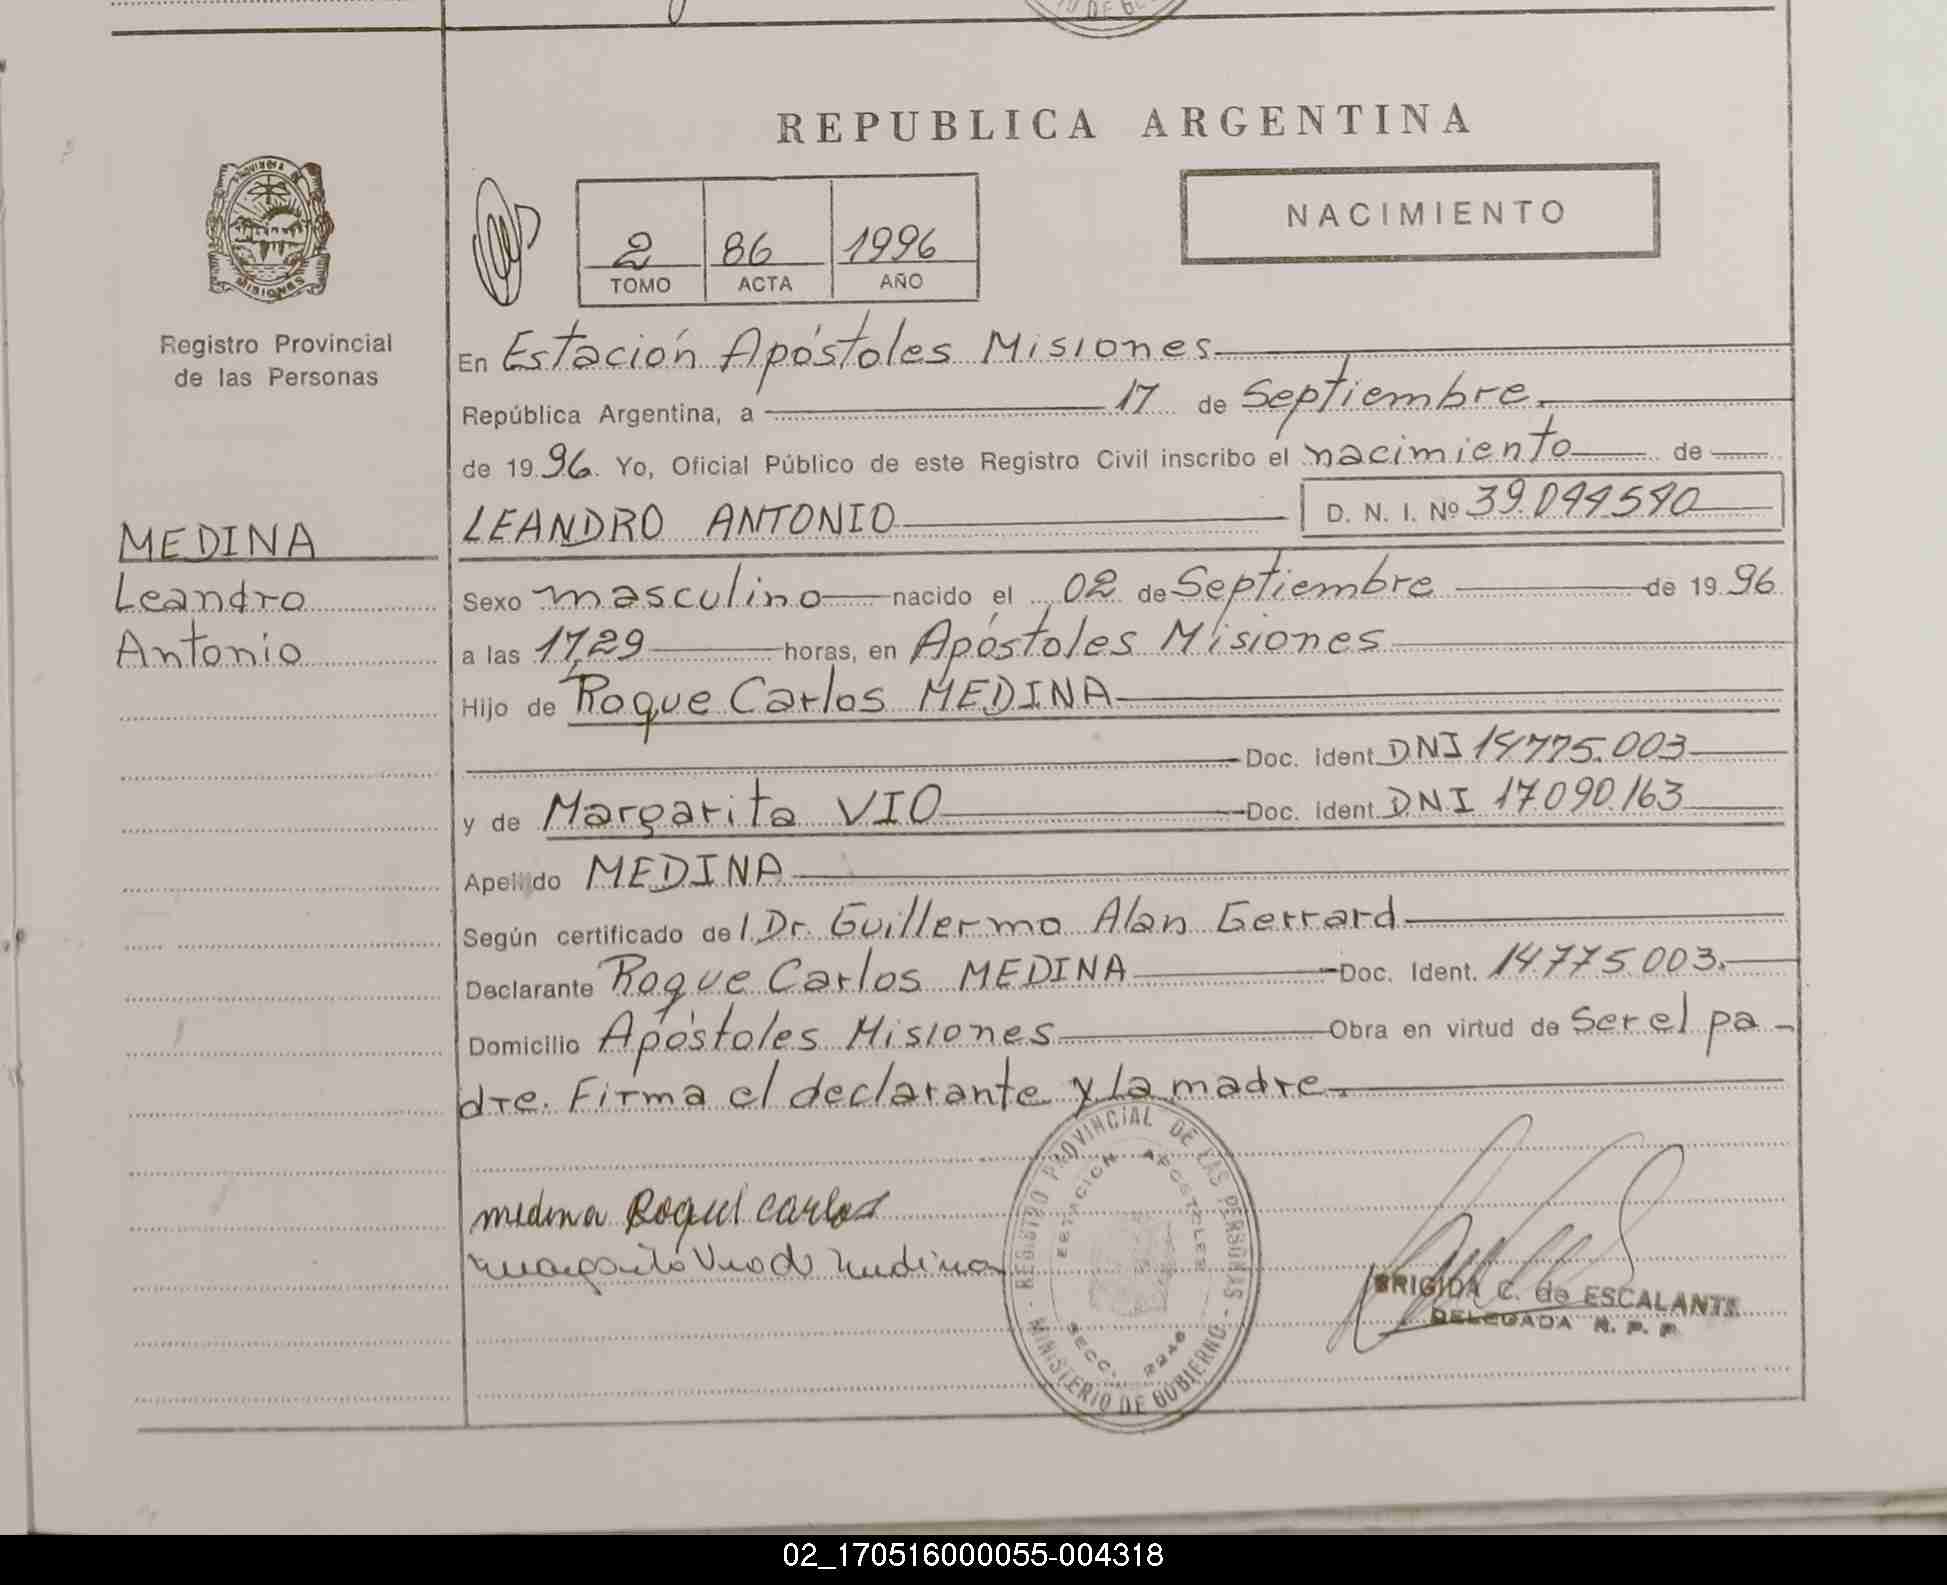 REPUBLICA ARGENTINA
PROVINCIA
MISIONES
Registro Provincial
de las Personas
2 86 1996
TOMO ACTA AÑO
NACIMIENTO
En Estación Apóstoles Misiones
República Argentina, a 17 de Septiembre.
de 1996. Yo, Oficial Público de este Registro Civil inscribo el nacimiento de
LEANDRO ANTONIO D. N. I. Nº 39.044540
MEDINA
Leandro
Antonio
Sexo masculino nacido el 02 de Septiembre de 1996
a las 17,29 horas, en Apóstoles Misiones
Hijo de Roque Carlos MEDINA
Doc. ident. DNI 14775.003
y de Margarita VIO Doc. ident. DNI 17.090.163
Apellido MEDINA
Según certificado del Dr. Guillermo Alan Gerrard
Declarante Roque Carlos MEDINA Doc. Ident. 14.775.003.
Domicilio Apóstoles Misiones Obra en virtud de ser el pa-
dre. Firma el declarante y la madre.
medina Roque carlos
margarita Vio de medina
REGISTRO PROVINCIAL DE LAS PERSONAS
ESTACION APOSTOLES
SECC.
MINISTERIO DE GOBIERNO
BRIGIDA C. de ESCALANTE
DELEGADA R. P. P.
02_170516000055-004318